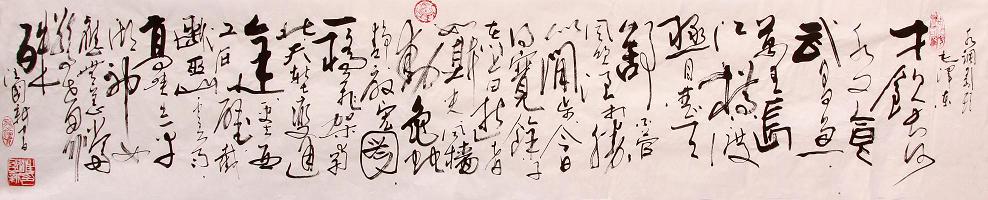 水调歌头
毛泽东
才飲长沙
水又食
武昌魚
萬里長
江横渡
極目楚天
舒不管
風吹浪打勝
似闲步今日
得寬餘子
在川上曰逝者
如斯夫风樯
動龟蛇
静起宏圖
一橋飛架南
北天堑變通
途更立西
江石壁截
断巫山云雨
高峡出平
湖神女
應無恙當
驚世界
殊